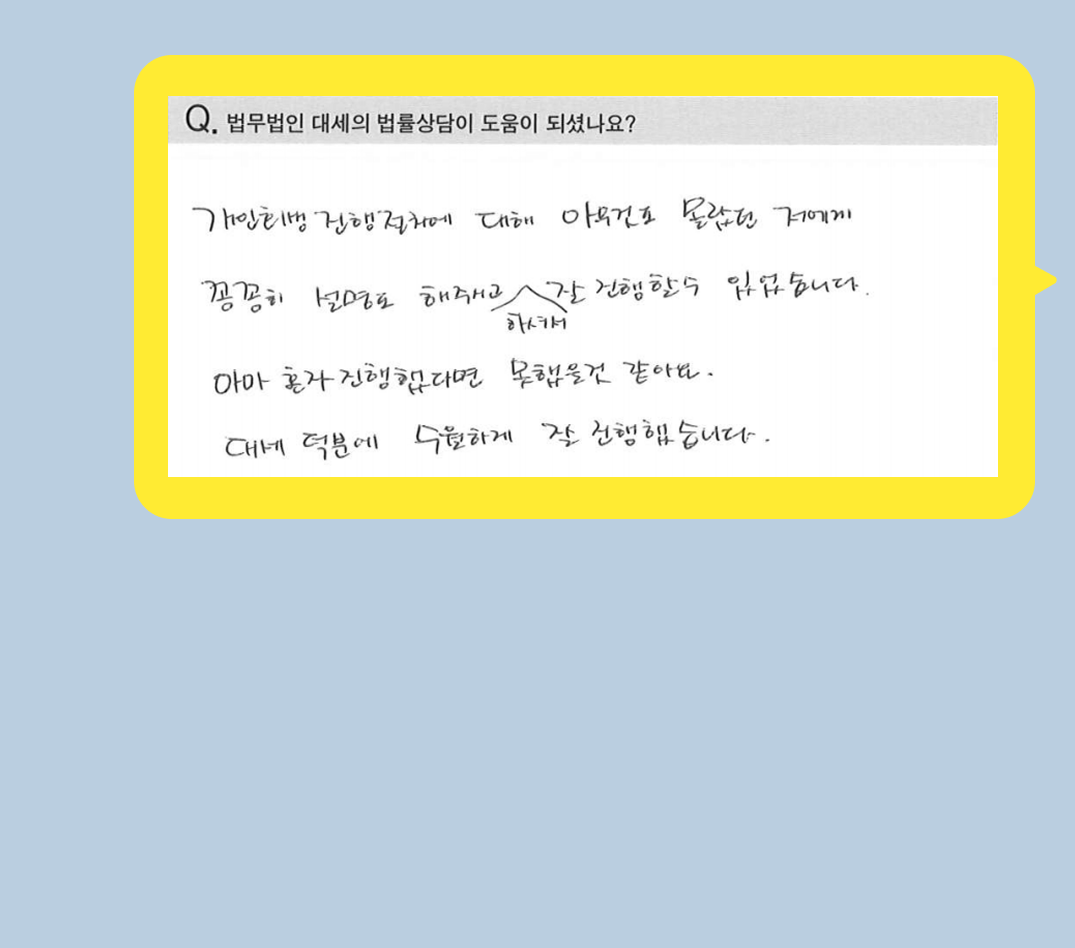 Q. 법무법인 대세의 법률상담이 도움이 되셨나요?
개인회생 진행절차에 대해 아무것도 몰랐던 저에게
꼼꼼히 설명도 해주시고 잘 진행할수 있었습니다.
하셔서
아마 혼자 진행했다면 못했을것 같아요.
대세 덕분에 수월하게 잘 진행했습니다.